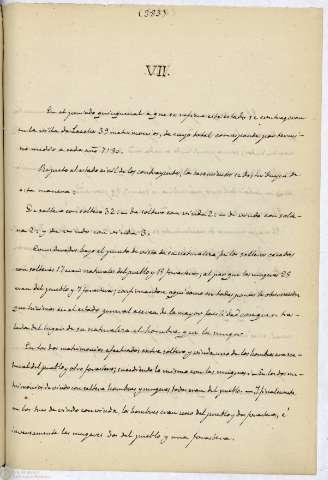 (383)
VII.
En el periodo quinquenal a que se refiere este estado se contrageron
en la villa de 39 matrimonios, de cuyo total corresponde por termi-
no medio a cada año 7'80.
Respecto al estado civil de los contrayentes, la casa se distribuye de
esta manera:
De soltero con soltera 32: = de soltero con viuda 2: = de viudo con solte-
ra 2: y de viudo con viuda 3.
Considerados bajo el punto de vista de su naturaleza, de los solteros casados
con solteras 17 eran naturales del pueblo y 15 forasteros, al paso que las mugeres 25
eran del pueblo y 7 forasteras; confirmandose aqui como en todas partes la observacion
que hicimos en el estado general acerca de la mayor facilidad con que se tras-
lada del lugar de su naturaleza el hombre que la muger.
En los dos matrimonios efectuados entre soltero y viuda uno de los hombres era na-
tural del pueblo y otro forastero, sucediendo lo mismo con las mugeres: = en los dos ma-
trimonios de viudo con soltera hombres y mugeres todos eran del pueblo. = Y finalmente
en los tres de viudo con viuda los hombres eran uno del pueblo y dos forasteros, é
inversamente las mugeres dos del pueblo y una forastera.